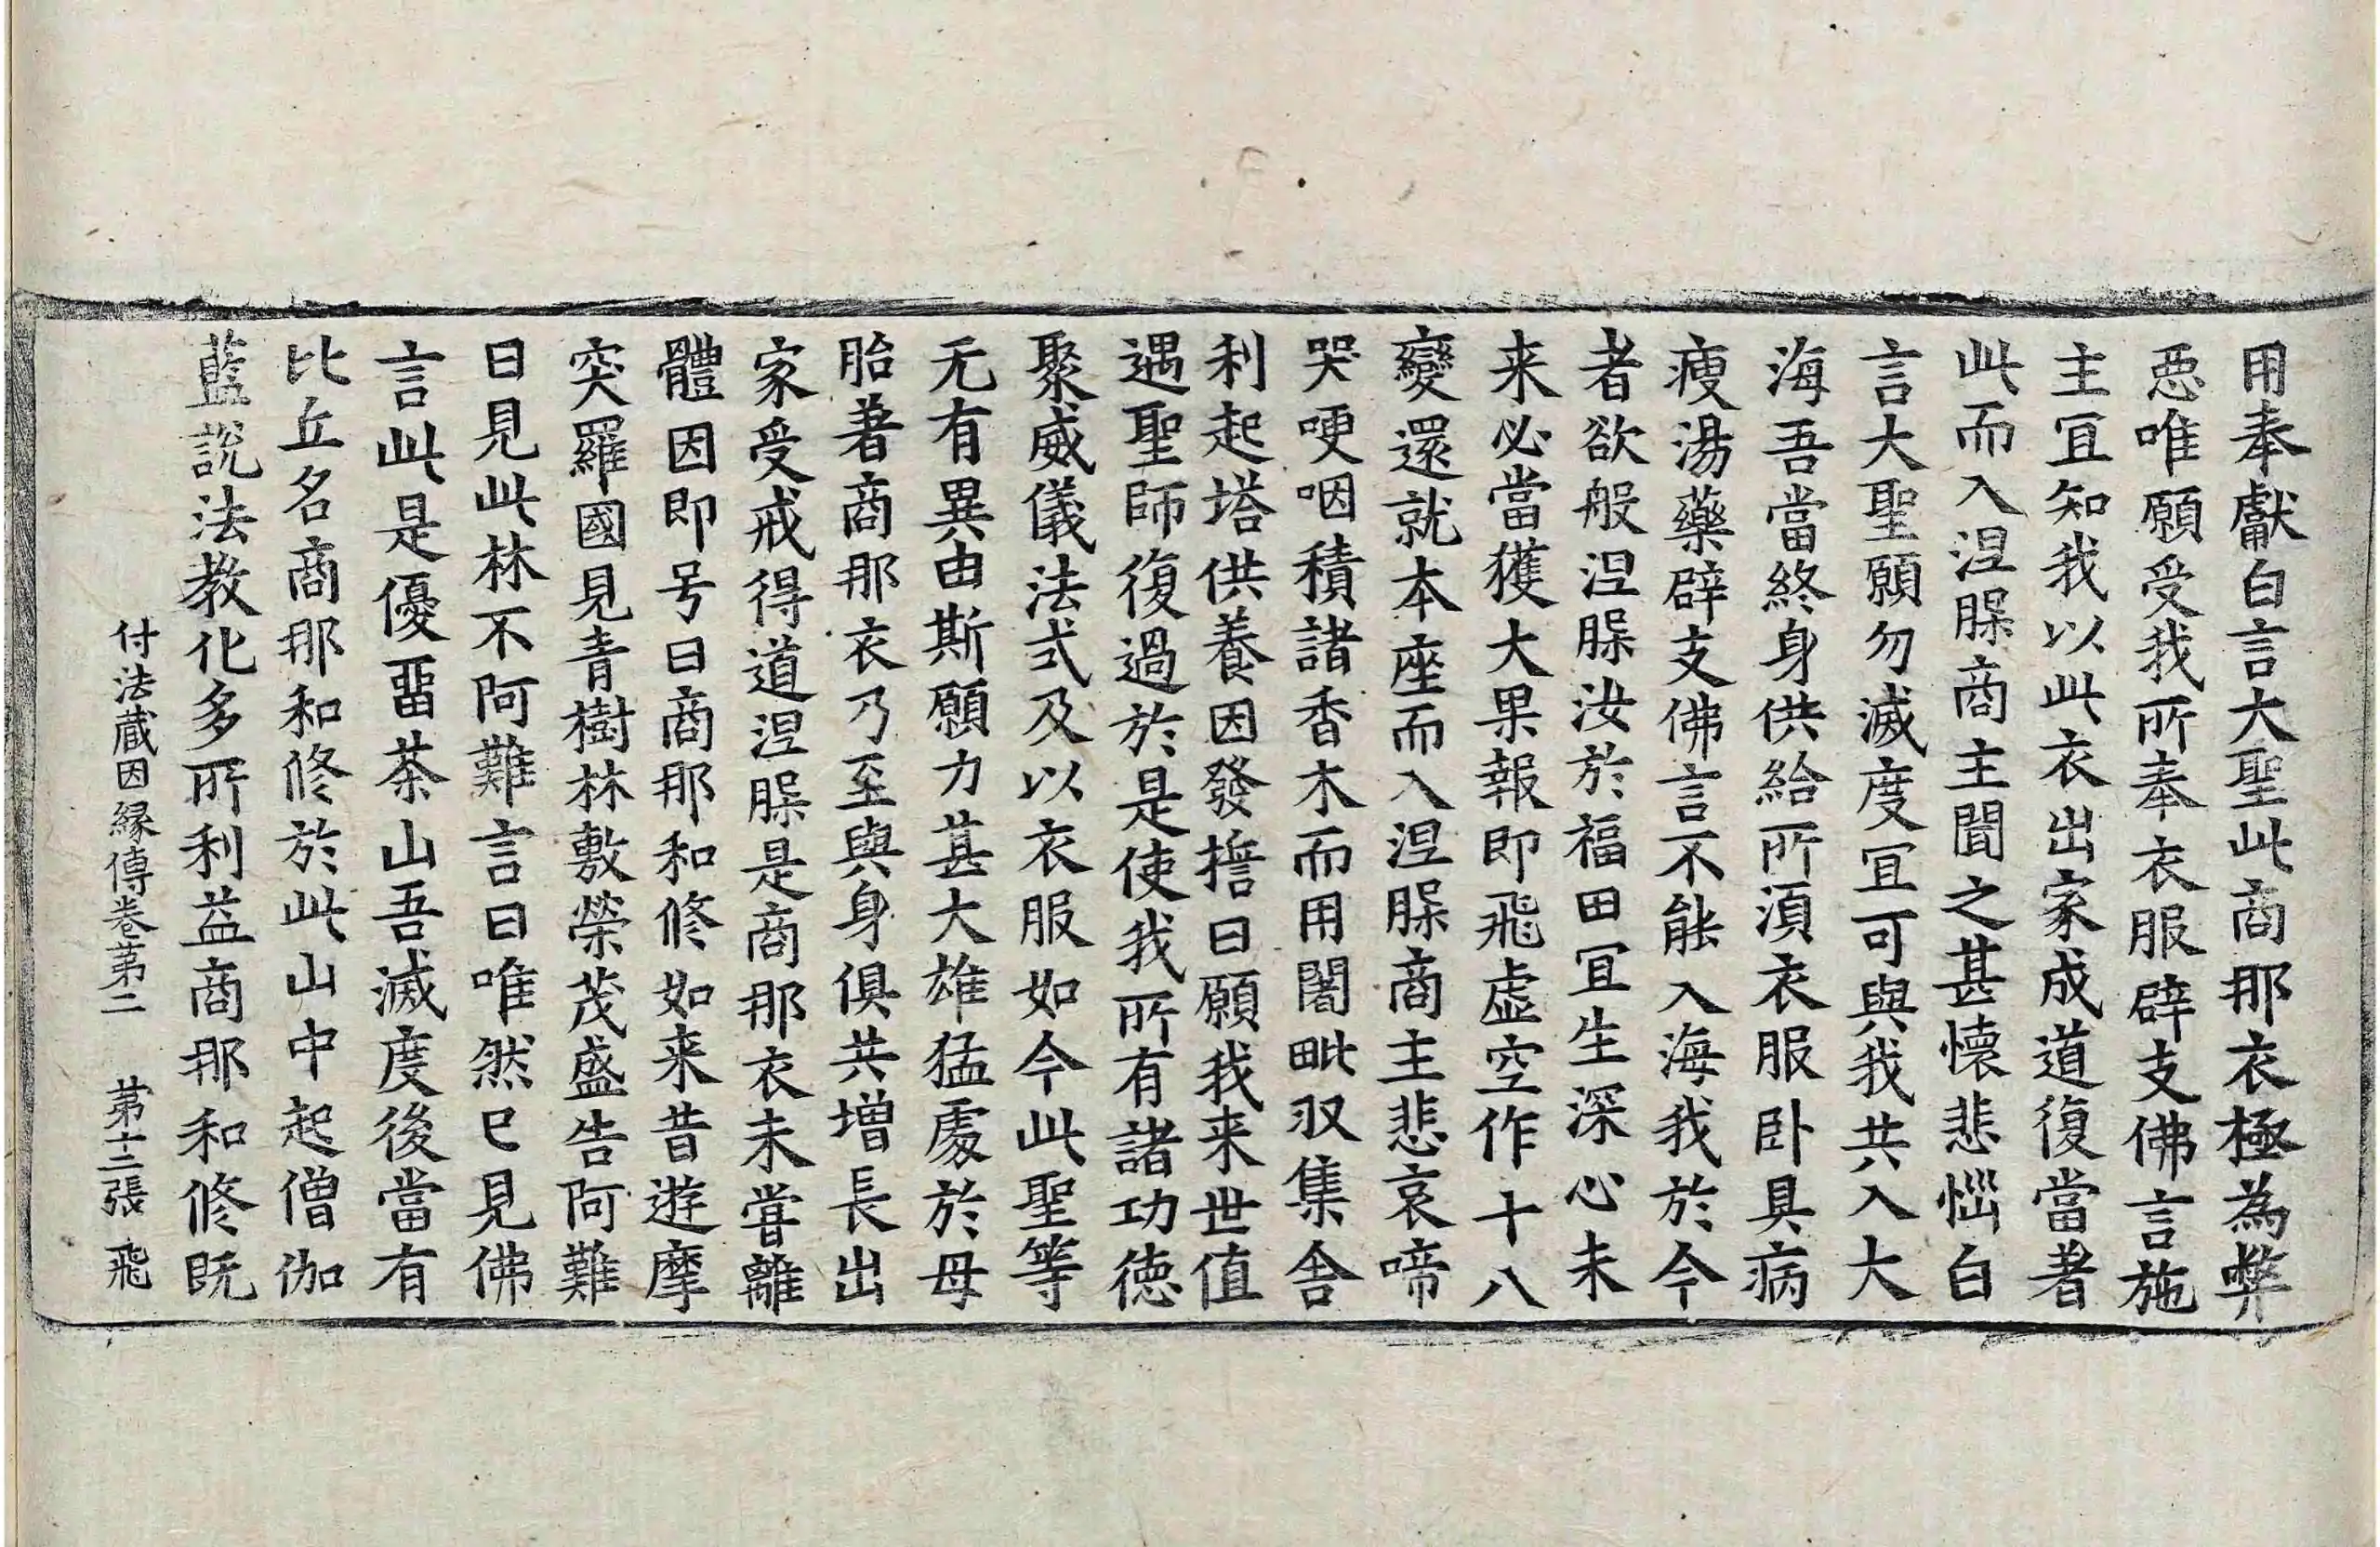 用奉獻白言大聖此商那衣極為弊
悪唯願受我所奉衣服辟支佛言施
主冝知我以此衣出家成道復當著
此而入涅槃商主聞之甚懷悲惱白
言大聖願勿滅度冝可與我共入大
海吾當終身供給所湏衣服卧具病
瘦湯藥辟支佛言不能入海我於今
者欲般涅槃汝於福田冝生深心未
来必當獲大果報即飛虚空作十八
變還就本座而入涅槃商主悲哀啼
哭哽咽積諸香木而用闍毗収集舍
利起塔供養因發擔曰願我来世值
遇聖師復過於是使我所有諸功德
聚威儀法式及以衣服如今此聖等
无有異由斯願力甚大雄猛處於母
胎著商那衣乃至與身俱共增長出
家受戒得道涅槃是商那衣未甞離
體因即号曰商那和修如来昔遊摩
突羅國見青樹林敷榮茂盛告阿難
曰見此林不阿難言曰唯然已見佛
言此是優留荼山吾滅度後當有
比丘名商那和修於此山中起僧伽
藍說法教化多所利益商那和修既
付法蔵因縁傳卷苐二 苐十三張 飛